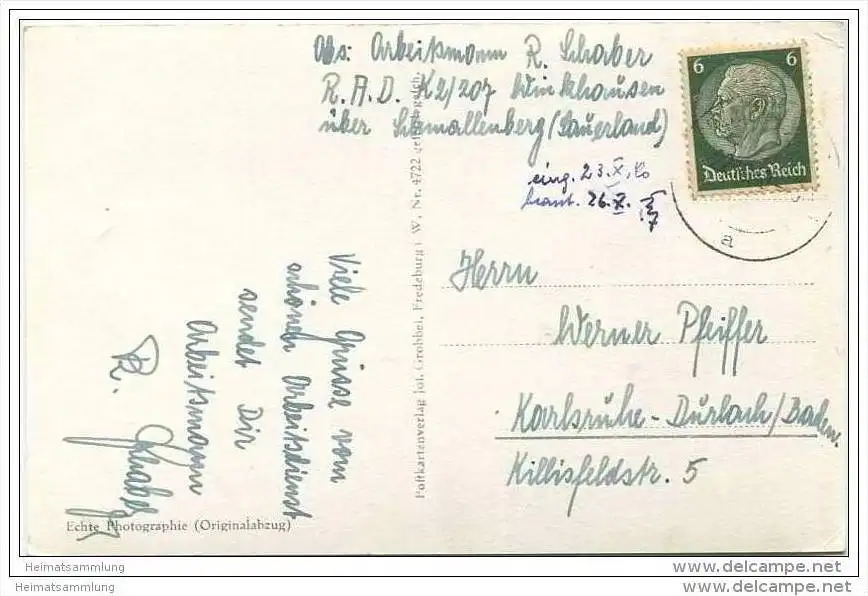 Heimatsammlung
Heimatsammlung
www.delcampe.net
Abs: Arbeitsmann R. Schaber
R.A.D. K2/207 Winkhausen
über Schmallenberg (Sauerland)
6 6
Deutsches Reich
eing. 23.X.
beant. 26.X.
a
Herrn
Werner Pfeiffer
Karlsruhe-Durlach/Baden.
Killisfeldstr. 5
Viele Grüsse vom
schönen Arbeitsdienst
sendet Dir
Arbeitsmann
R. Schaber
Postkartenverlag Jof. Grobbel, Fredeburg i. W. Nr. 4722 gesch.
Echte Photographie (Originalabzug)
Heimatsammlung
Heimatsammlung
www.delcampe.net
www.delcampe.net